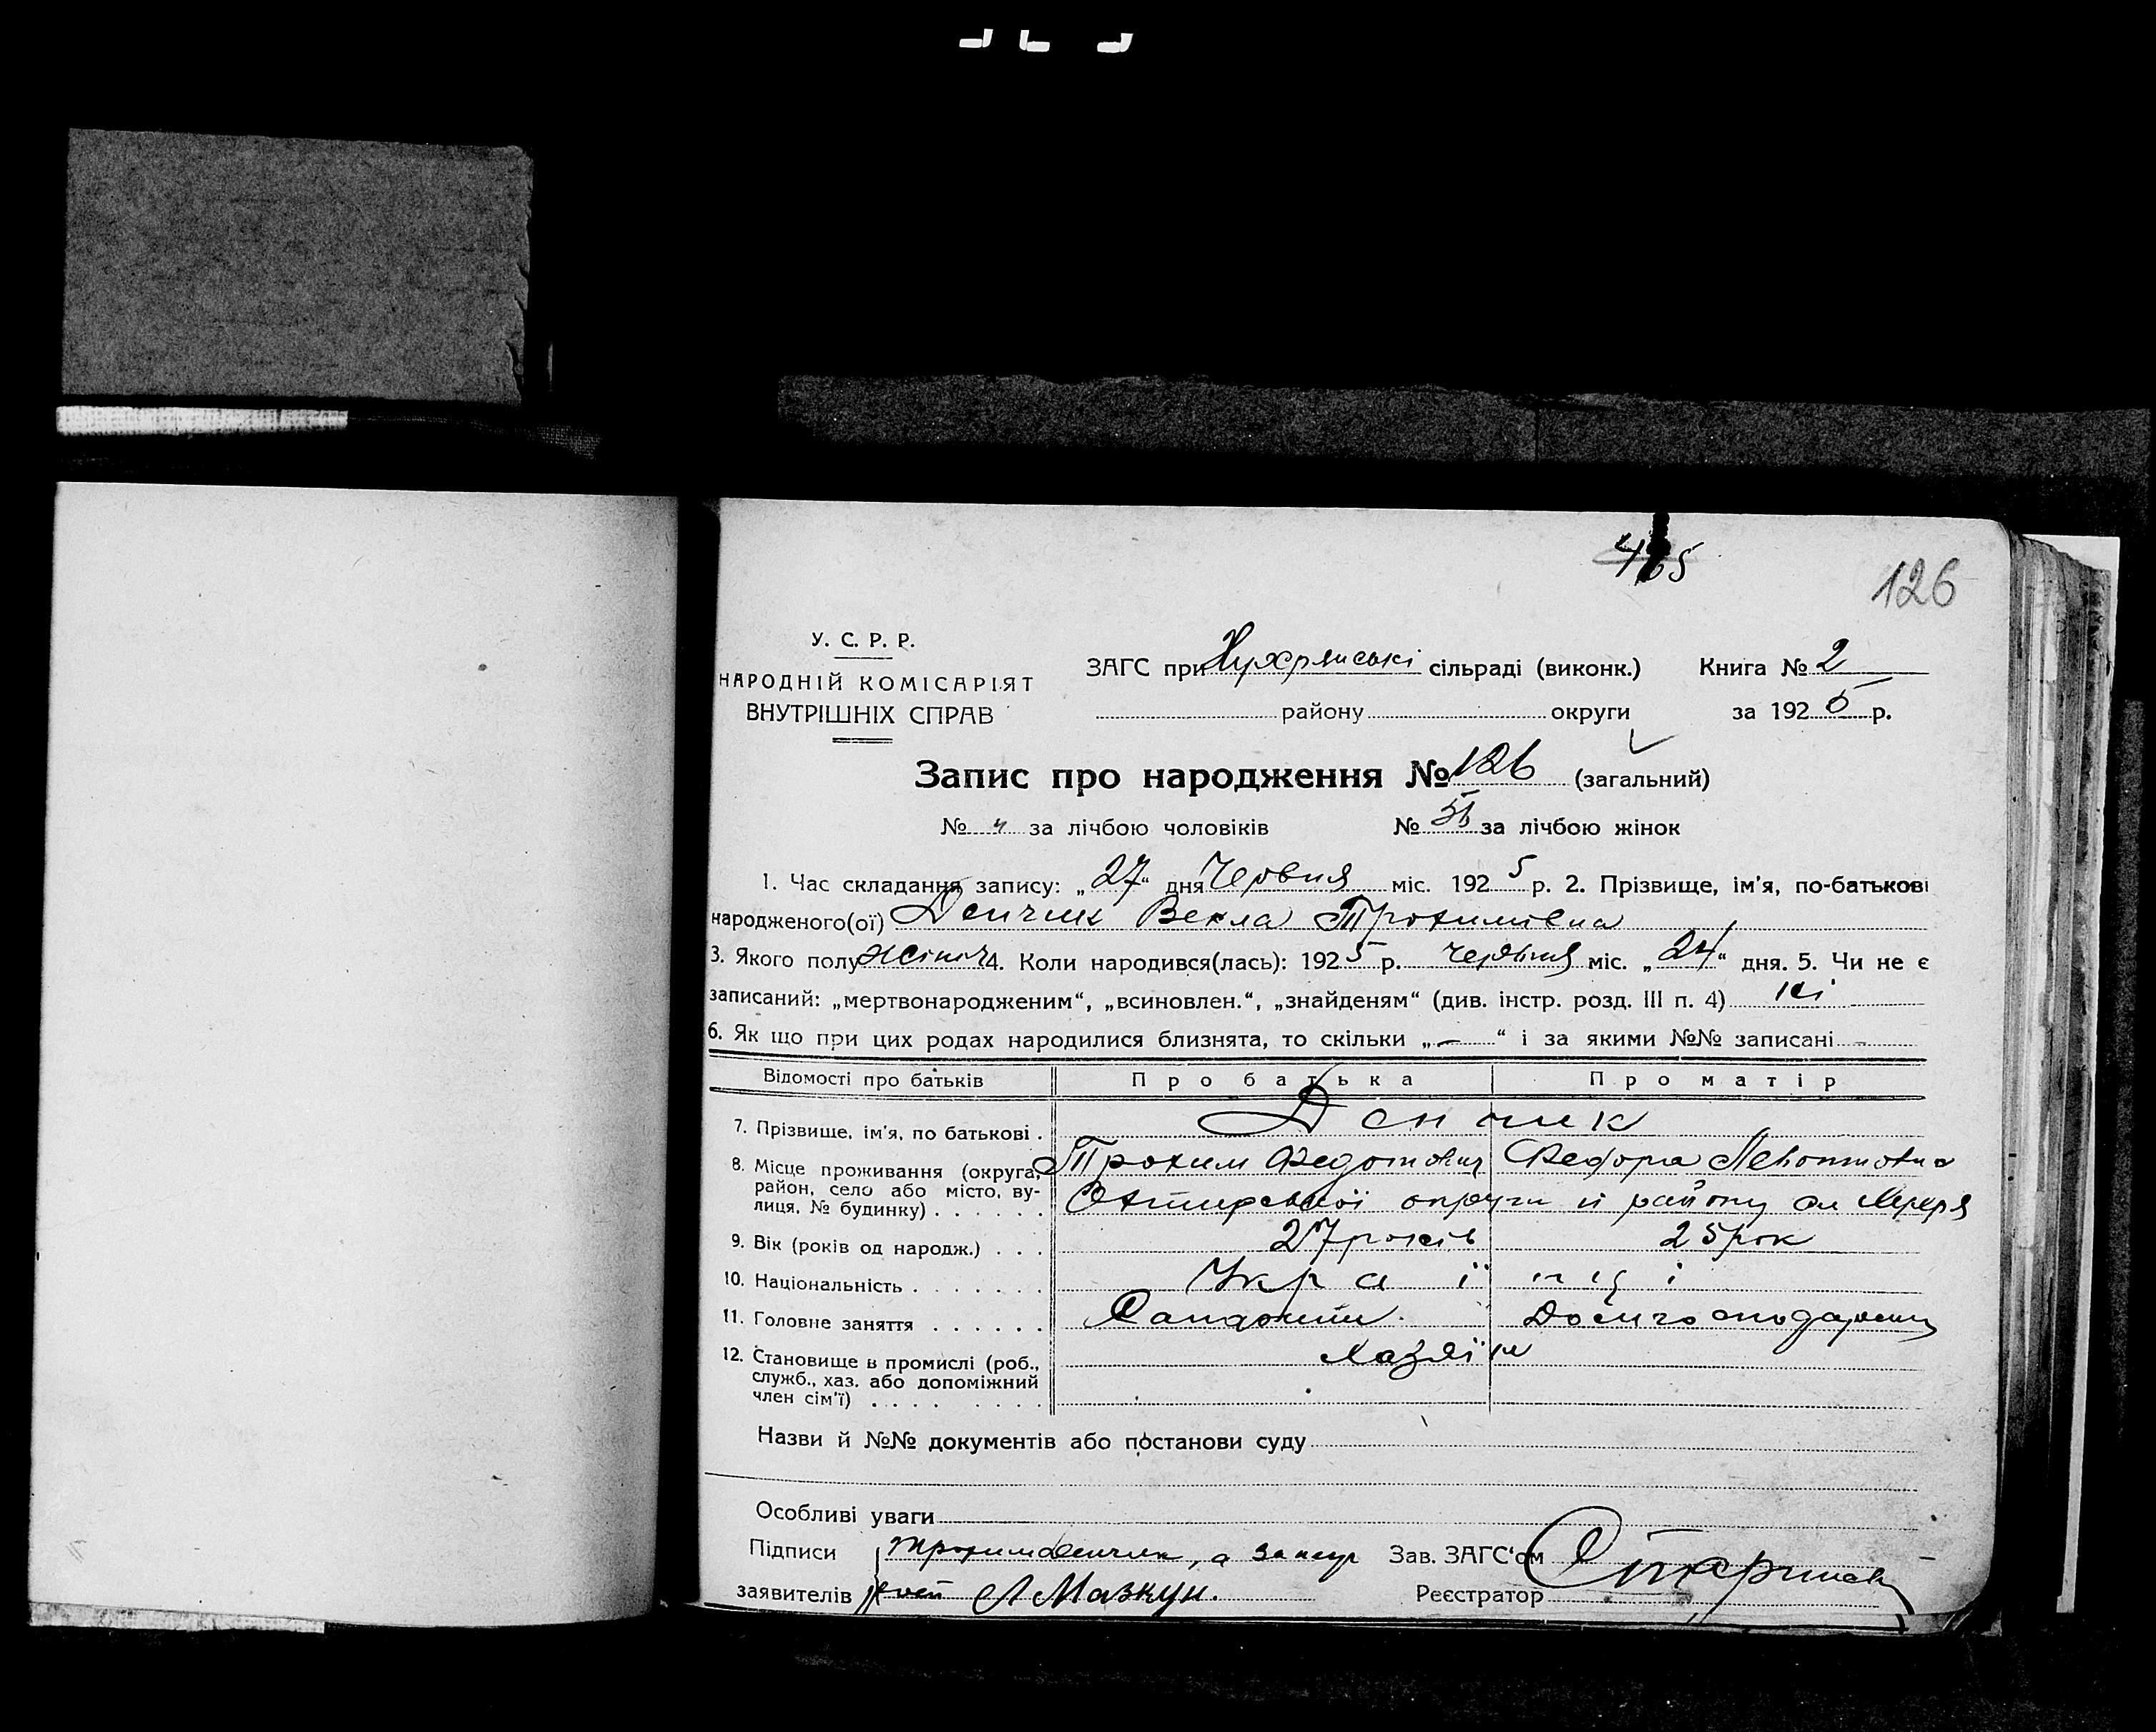 126
У. С. Р. Р.
НАРОДНІЙ КОМІСАРІЯТ
ВНУТРІШНІХ СПРАВ
ЗАГС при сільраді (виконк.) Книга № 2
району округи за 1925 р.
Запис про народження № 126 (загальний)
№ " за лічбою чоловіків № за лічбою жінок
1. Час складання запису: „27“ дня Червня міс. 1925 р. 2. Прізвище, ім'я, по-батькові
народженого(ої) Денчик Векла Трохимівна
3. Якого полу жіноч 4. Коли народився(лась): 1925 р. червня міс. „24“ дня. 5. Чи не є
записаний: „мертвонародженим“, „всиновлен.“, „знайденям“ (див. інстр. розд. III п. 4) ні
6. Як що при цих родах народилися близнята, то скільки „—“ і за якими №№ записані -
Відомості про батьків Про батька Про матір
7. Прізвище, ім'я, по батькові . Денчик
8. Місце проживання (округа, район, село або місто, вулиця, № будинку) . . . . . .
Трохим Федотович Федора
Охтирської округи й району
9. Вік (років од народж.) . . . 27 років 25 рок
10. Національність . . . . . . . Украї нці
11. Головне заняття . . . . . . Домгосподарень
12. Становище в промислі (роб., служб., хаз. або допоміжний член сім'ї) . . . . . . . . Хазяїн
Назви й №№ документів або постанови суду
Особливі уваги
Підписи Трохим Денчик, а за Зав. ЗАГС'ом
заявителів Л Мазкун. Реєстратор